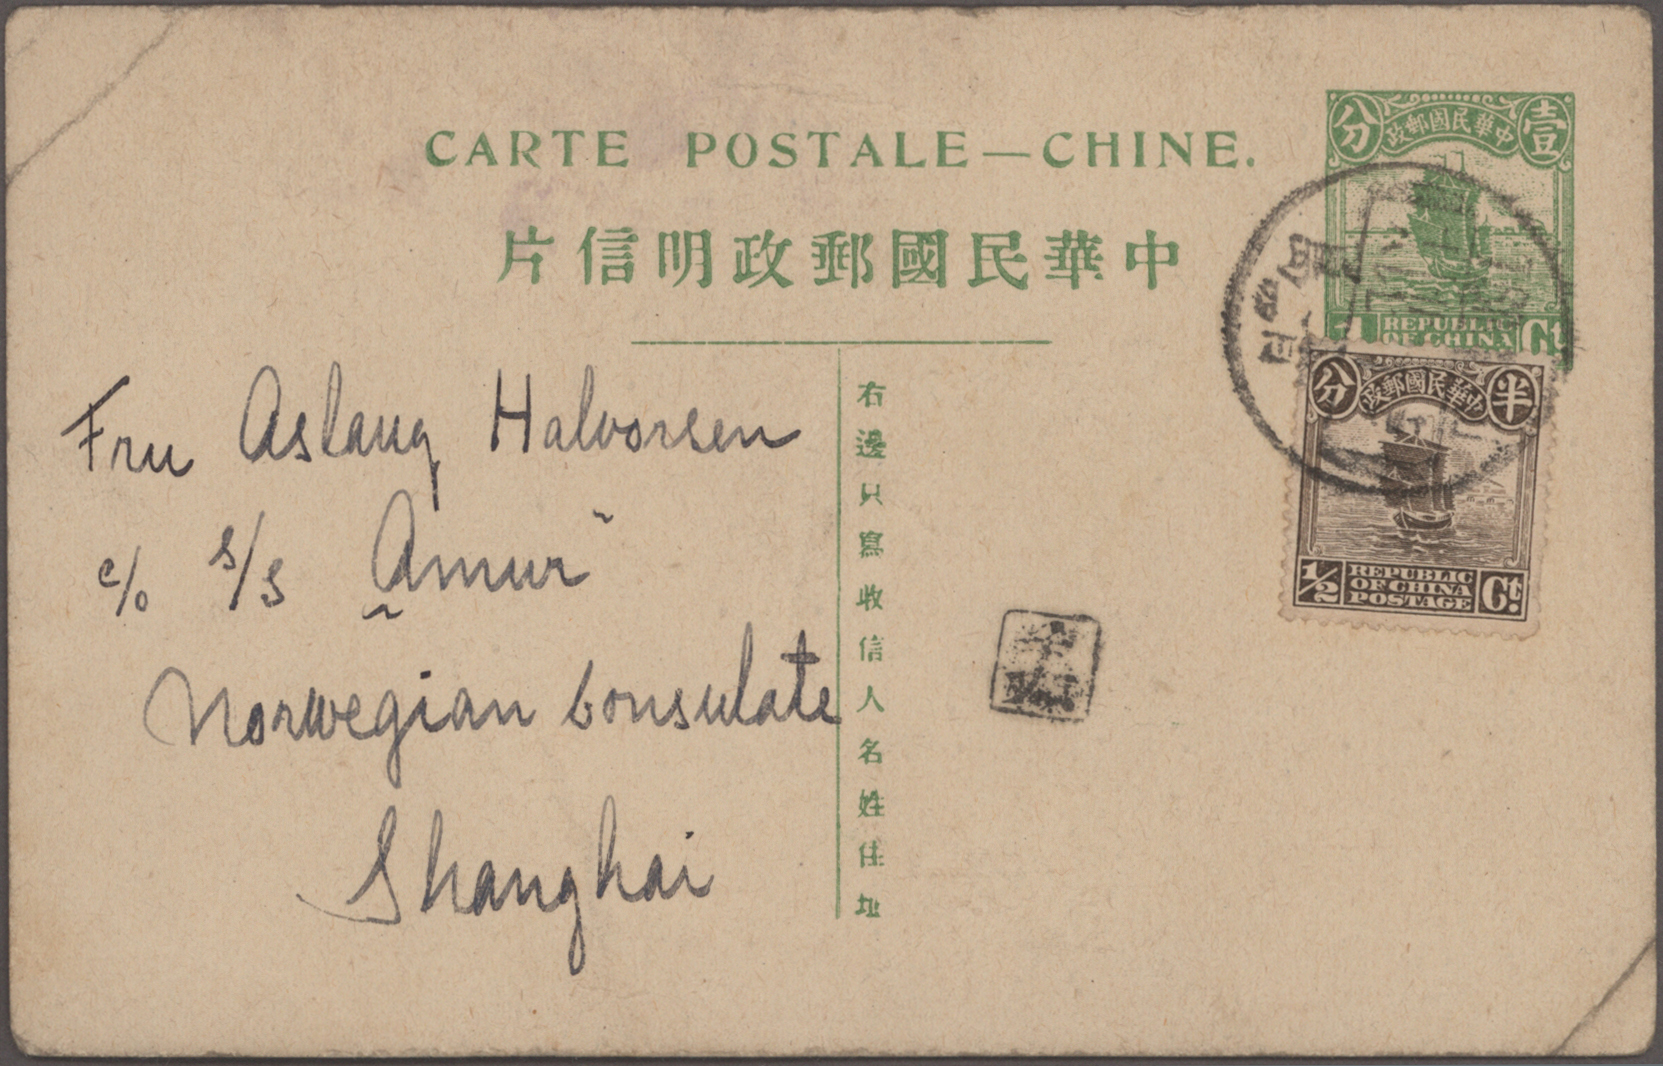 CARTE POSTALE—CHINE.
中華民國郵政明信片
分 中華民國郵政 壹
1 REPUBLIC OF CHINA Ct.
分 中華民國郵政 半
1/2 REPUBLIC OF CHINA POSTAGE Ct.
右邊只寫收信人名姓住地
Fru Aslaug Halvorsen
c/o s/s "Amur"
Norwegian Consulate
Shanghai